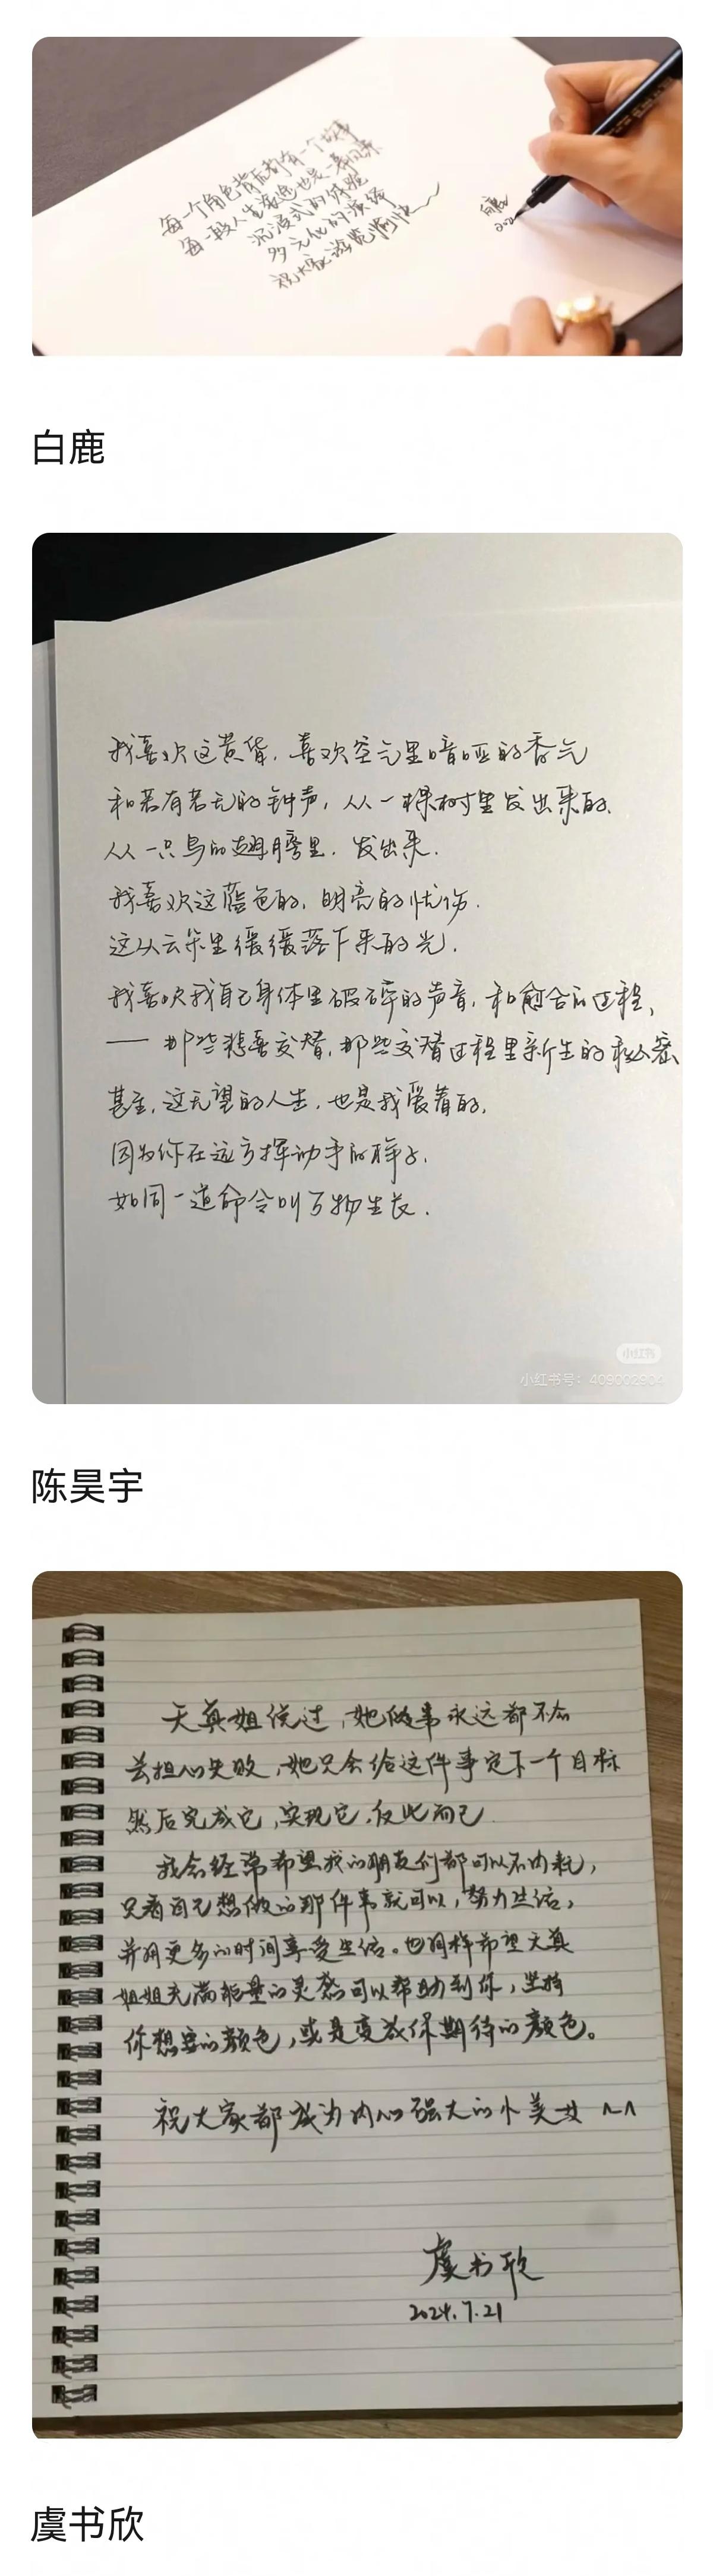 每一个角色背后都有一个故事
每一段人生旅途也是一幕风景
沉浸式的体验
多元化的演绎
祝大家游览愉快
白鹿
白鹿
我喜欢这黄昏，喜欢空气里喑哑的香气
和若有若无的钟声，从一棵树里发出来的，
从一只鸟的翅膀里，发出来．
我喜欢这蓝色的，明亮的忧伤．
这从云朵里缓缓落下来的光．
我喜欢我自己身体里破碎的声音，和愈合的过程，
—— 那些悲喜交替，那些交替过程里新生的秘密
甚至，这无望的人生，也是我爱着的，
因为你在远方挥动手的样子，
如同一道命令叫万物生长．
小红书
小红书号：409002904
陈昊宇
天真姐说过，她做事永远都不会
去担心失败，她只会给这件事定下一个目标
然后完成它，实现它，仅此而已．
我会经常希望我的朋友们都可以不内耗，
只看自己想做的那件事就可以，努力生活，
并用更多的时间享受生活。也同样希望天真
姐姐充满能量的灵感可以帮助到你，坚持
你想要的颜色，或是变成你期待的颜色。
祝大家都成为内心强大的小美女 ^^
虞书欣
2024.7.21
虞书欣